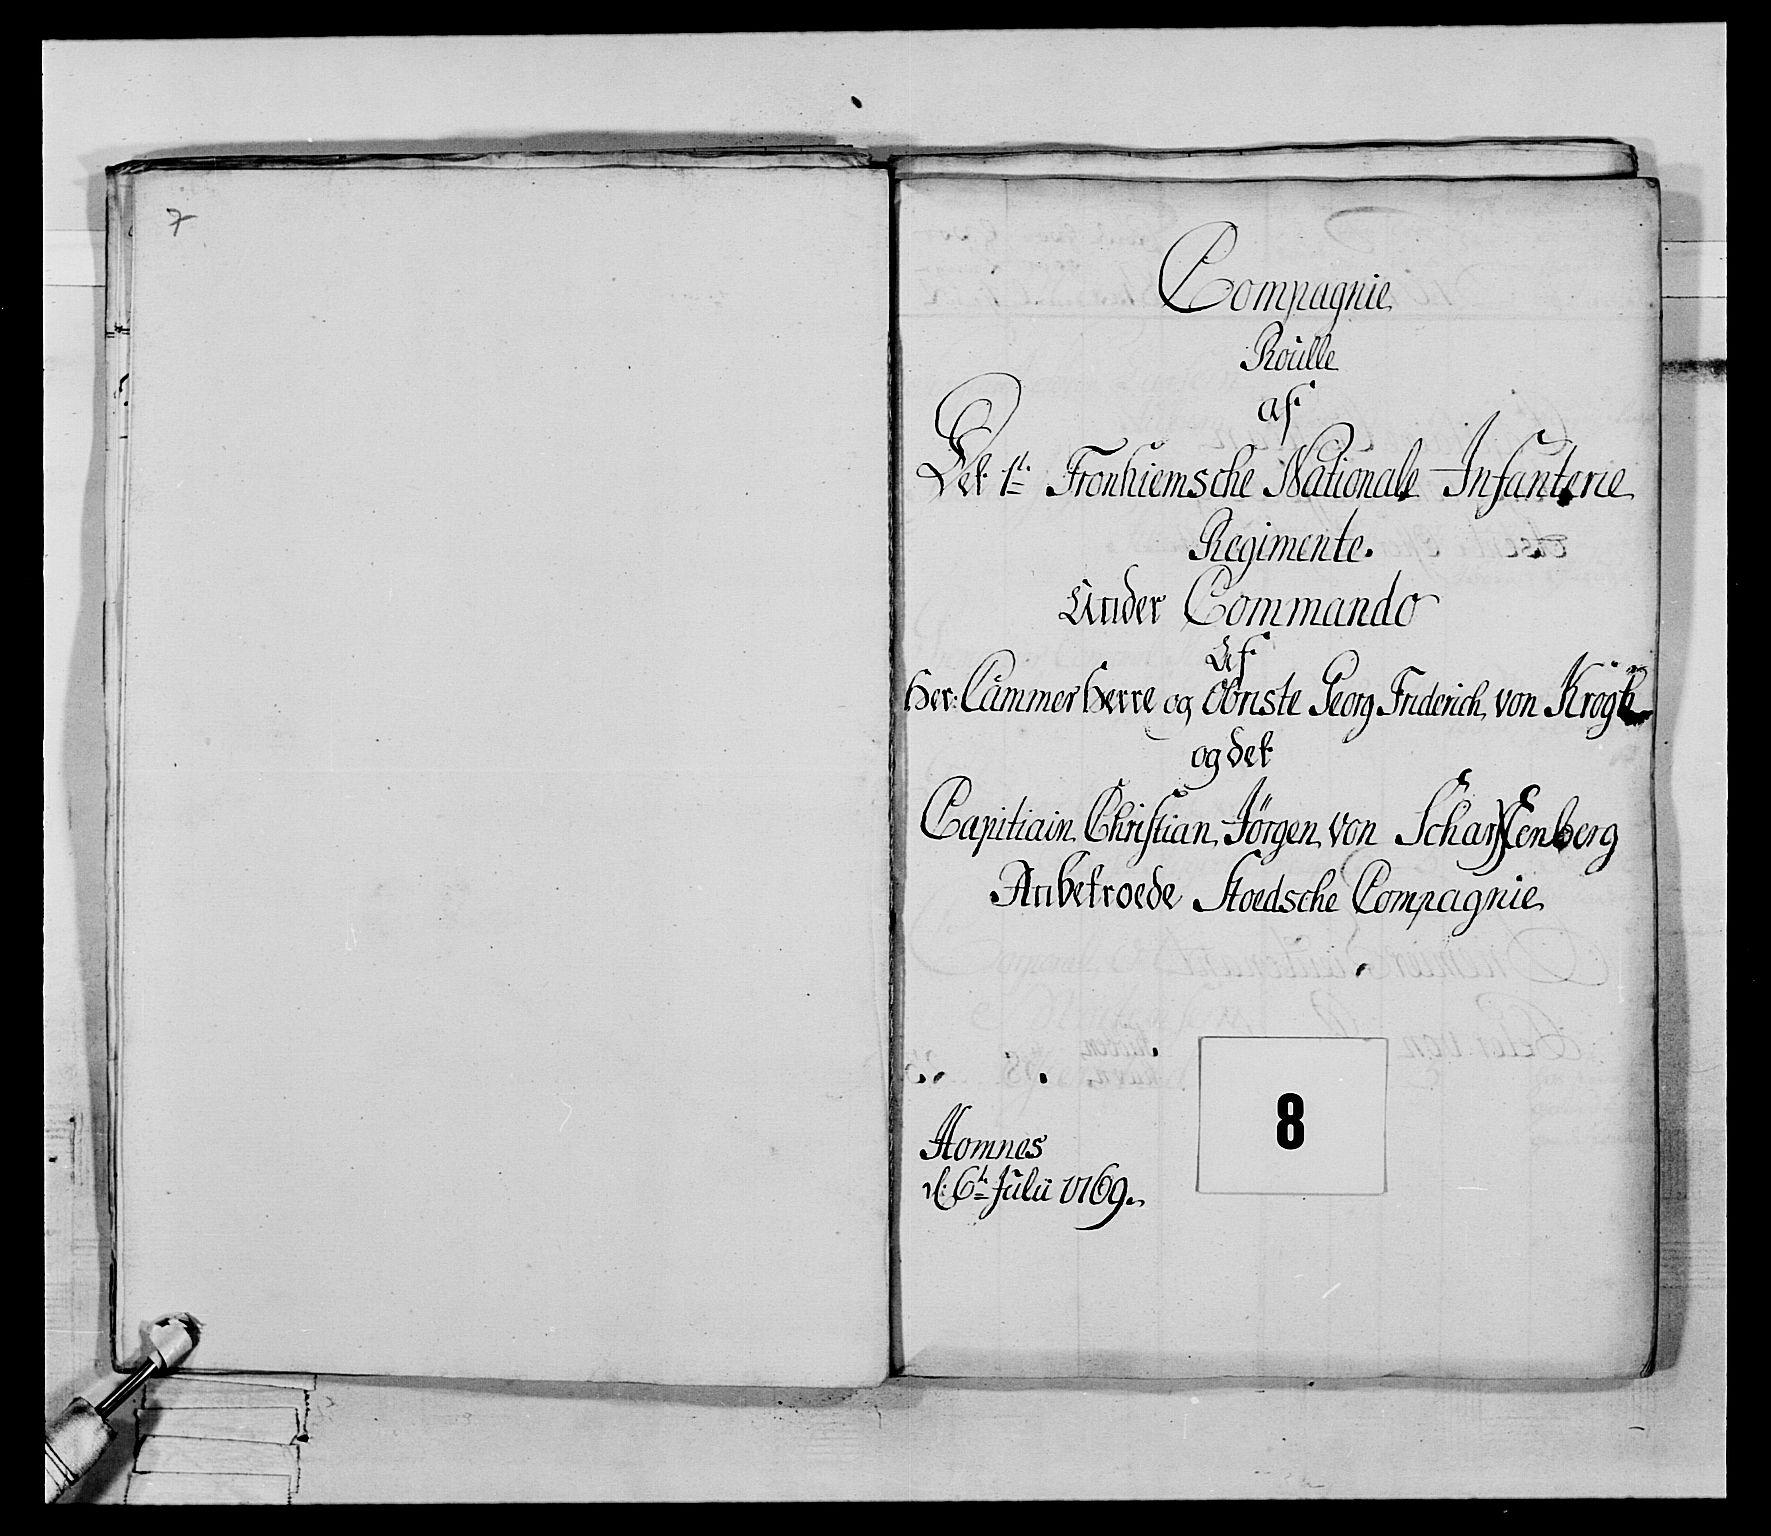 7
Compagnie
Roulle
af
Det 1ste Tronhiemsche Nationale Infanterie
Regimente.
Under Commando
Af
Her: Cammer Herre og Obriste Georg Friderich von Krogh
og det
Capitiain Christian Jörgen von Scharffenberg
Anbetroede Stoedsche Compagnie
8
Homnes
d: 6te Julii 1769.